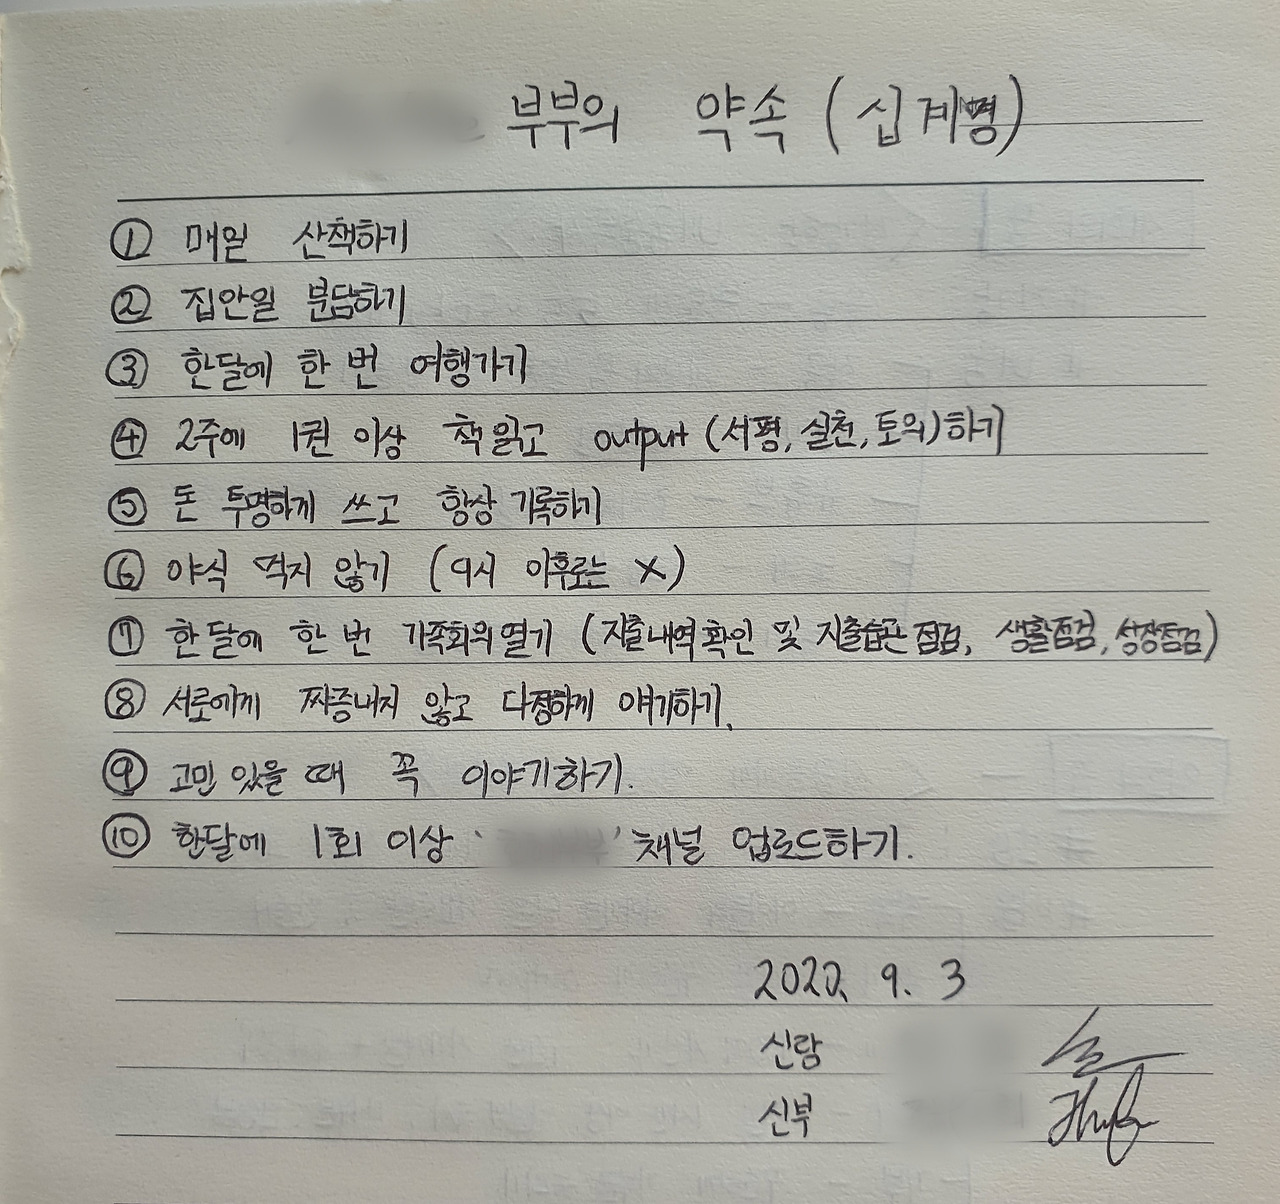 부부의 약속 (십계명)
① 매일 산책하기
② 집안일 분담하기
③ 한달에 한 번 여행가기
④ 2주에 1권 이상 책 읽고 output (서평, 실천, 토의)하기
⑤ 돈 투명하게 쓰고 항상 기록하기
⑥ 야식 먹지 않기 (9시 이후로는 X)
⑦ 한달에 한 번 가족회의 열기 (지출내역 확인 및 지출습관 점검, 생활점검, 성장점검)
⑧ 서로에게 짜증내지 않고 다정하게 얘기하기.
⑨ 고민 있을 때 꼭 이야기하기.
⑩ 한달에 1회 이상 ' ' 채널 업로드하기.
2020. 9. 3
신랑
신부